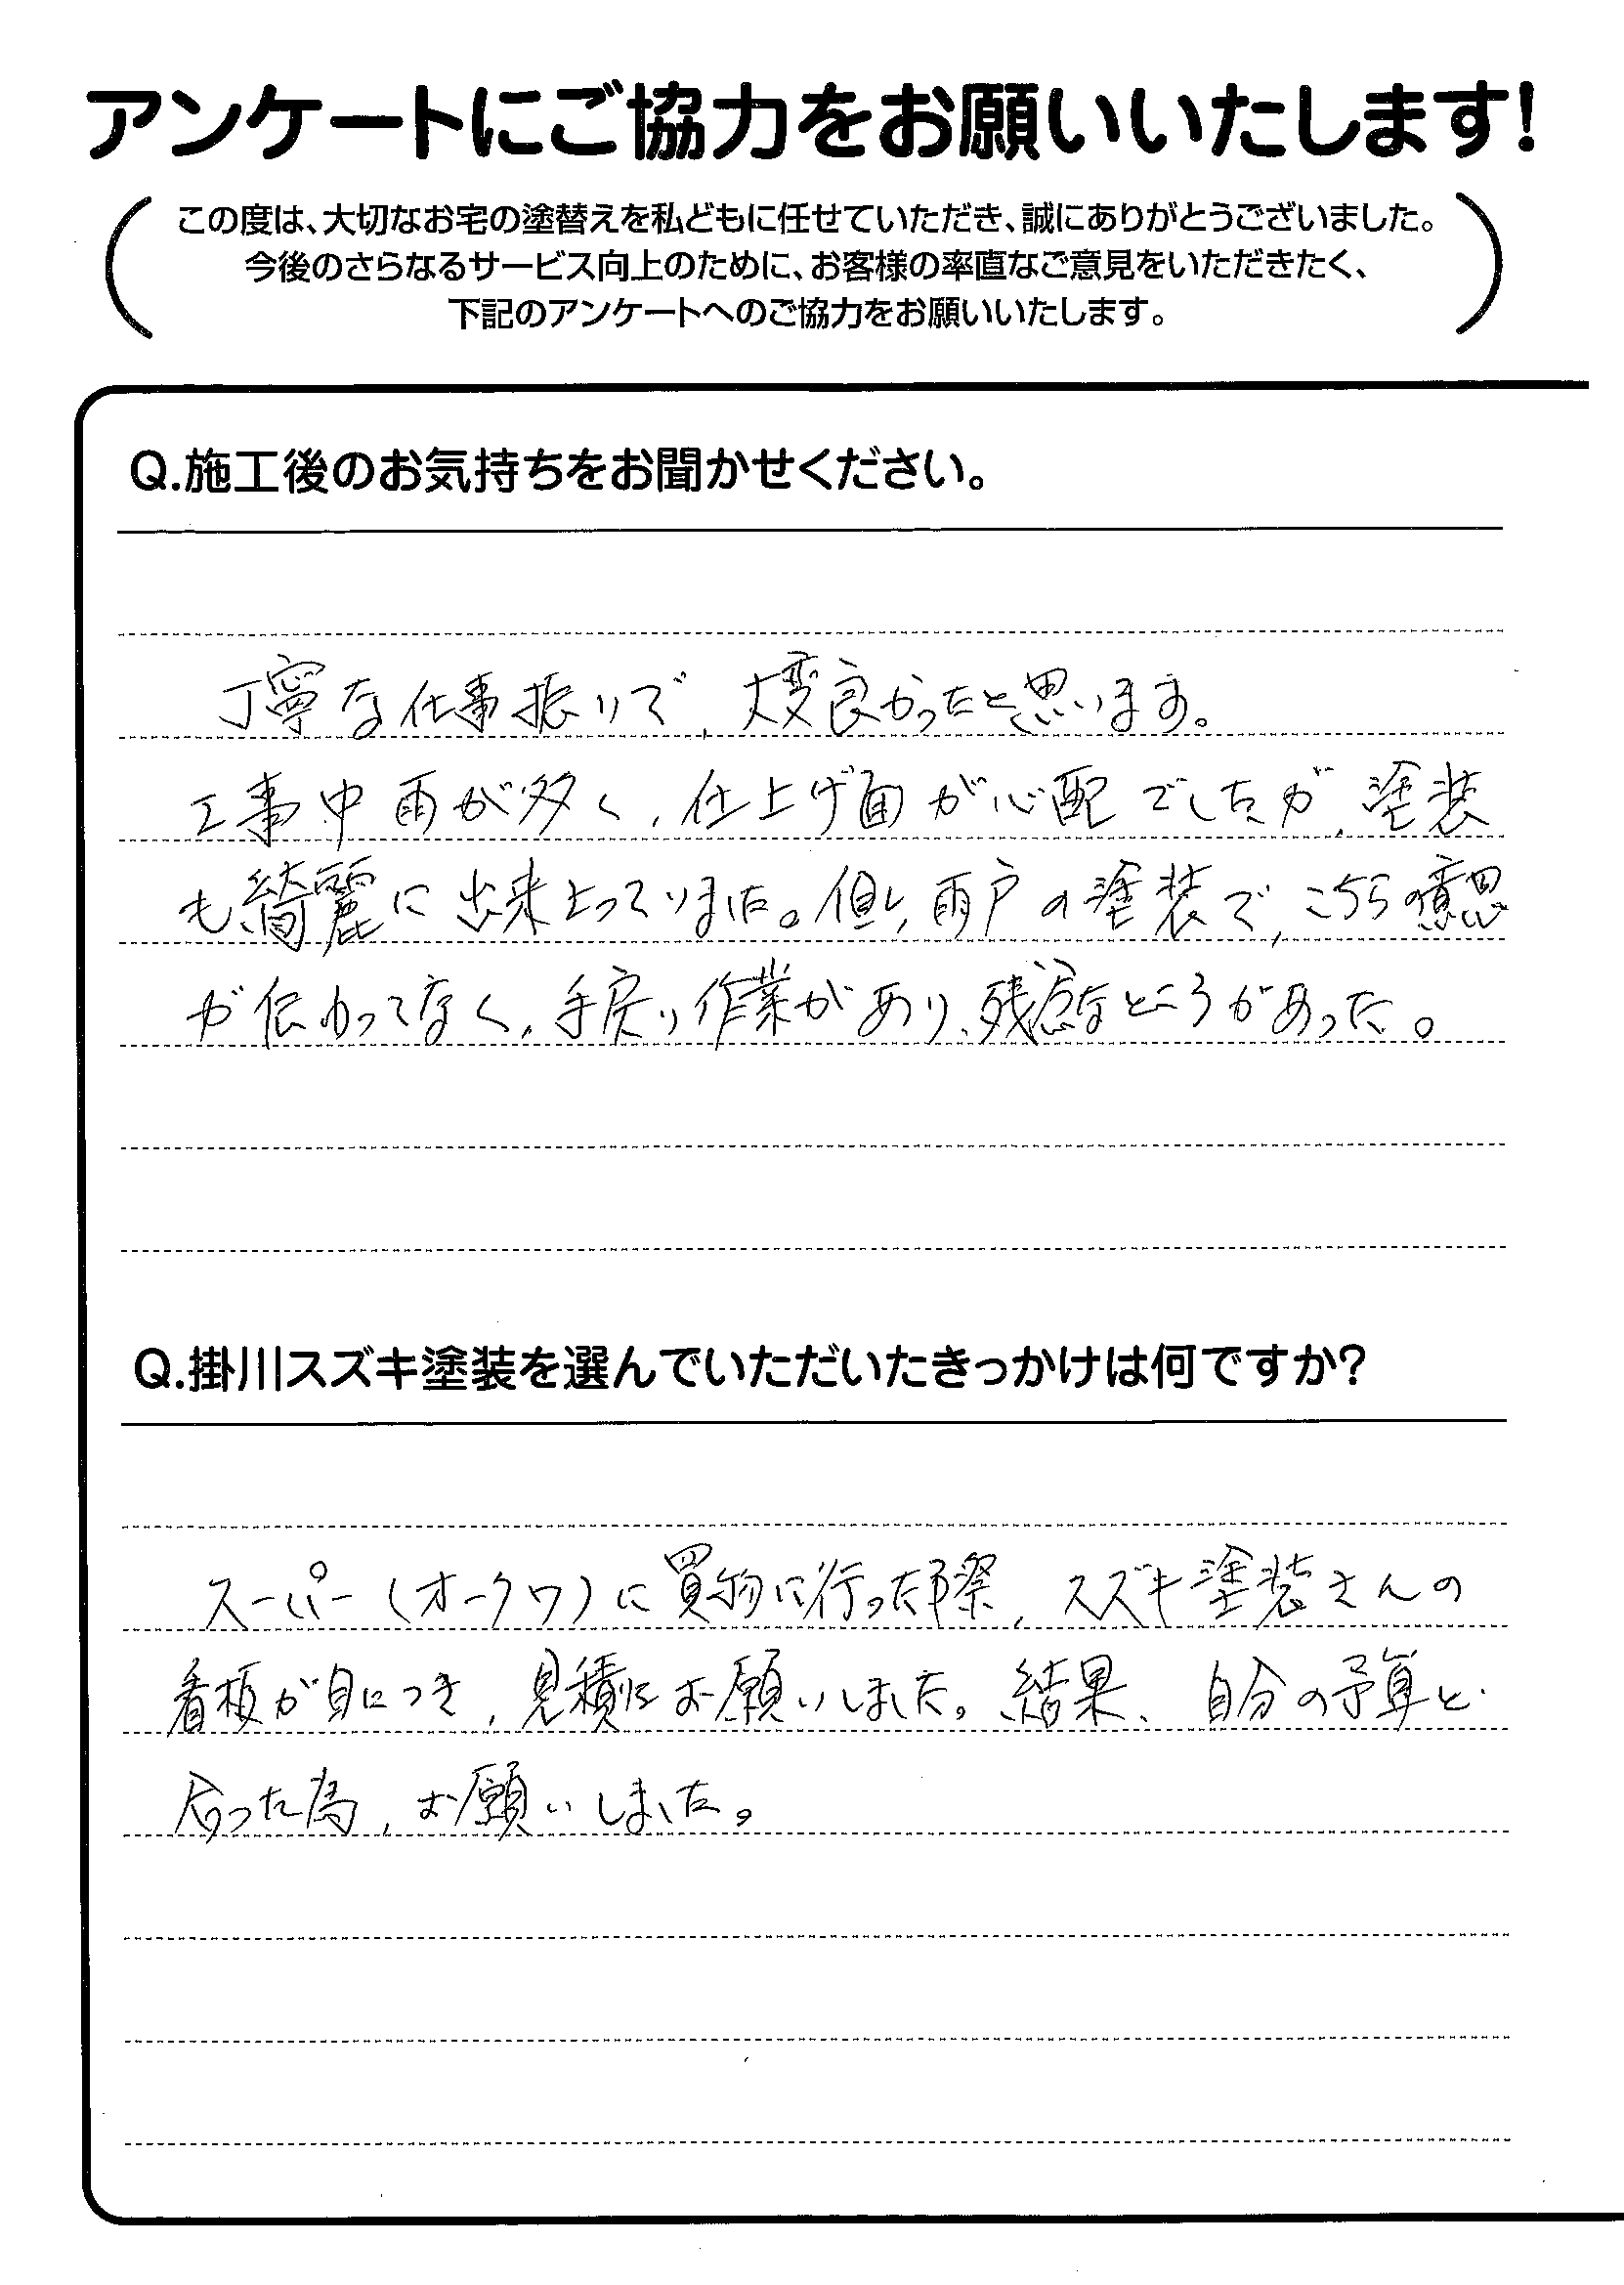 アンケートにご協力をお願いいたします!
この度は、大切なお宅の塗替えを私どもに任せていただき、誠にありがとうございました。
今後のさらなるサービス向上のために、お客様の率直なご意見をいただきたく、
下記のアンケートへのご協力をお願いいたします。
Q.施工後のお気持ちをお聞かせください。
丁寧な仕事振りで、大変良かったと思います。
工事中雨が多く、仕上げ面が心配でしたが、塗装
も綺麗に出来上っていました。但し、雨戸の塗装で、こちらの意思
が伝わってなく、手戻り作業があり、残念なところがあった。
Q.掛川スズキ塗装を選んでいただいたきっかけは何ですか?
スーパー(オークワ)に買物に行った際、スズキ塗装さんの
看板が目につき、見積をお願いしました。結果、自分の予算と
合った為、お願いしました。